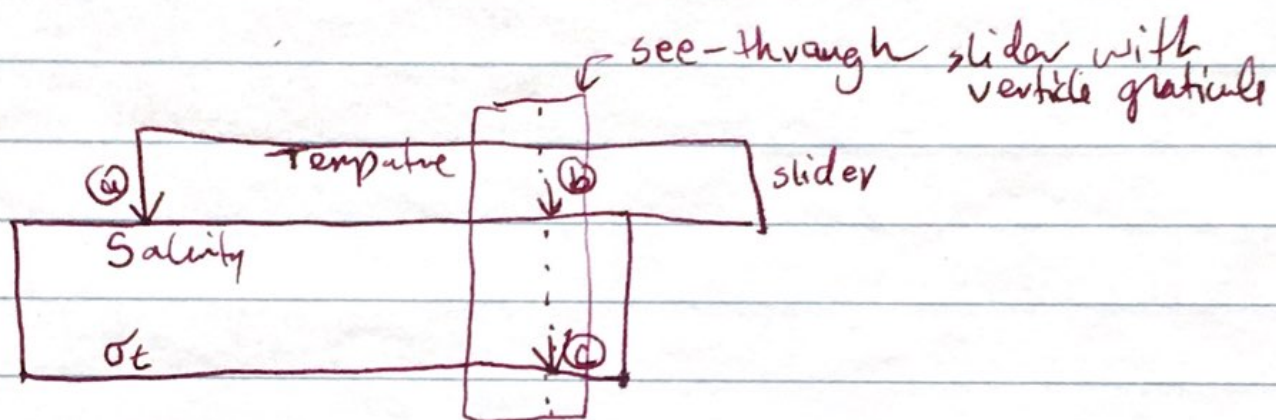 see-through slider with
verticle graticule
Tempatue
slider
ⓐ
ⓑ
Salinity
σt
ⓒ